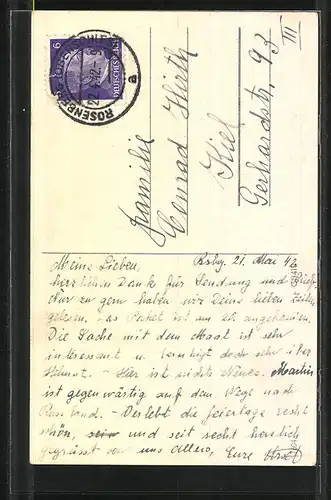 DEUTSCHES REICH
6
ROSENBERG
a
Familie
Conrad Hirth
Kiel
Gerhardstr. 93
III
Rsbg. 21. Mai 42
Meine Lieben,
herzlichen Dank für Sendung und
Nur zu gern haben wir Deine lieben Zeilen
gelesen. Das Paket ist am 20. angekommen.
Die Sache mit dem Maat ist sehr
interessant u. beruhigt doch sehr über
Helmut. - Hier ist nichts Neues. Martin
ist gegenwärtig auf dem Wege nach
Russland. - Verlebt die Feiertage recht
schön, und seit recht herzlich
gegrüsst von uns Allen, Eure